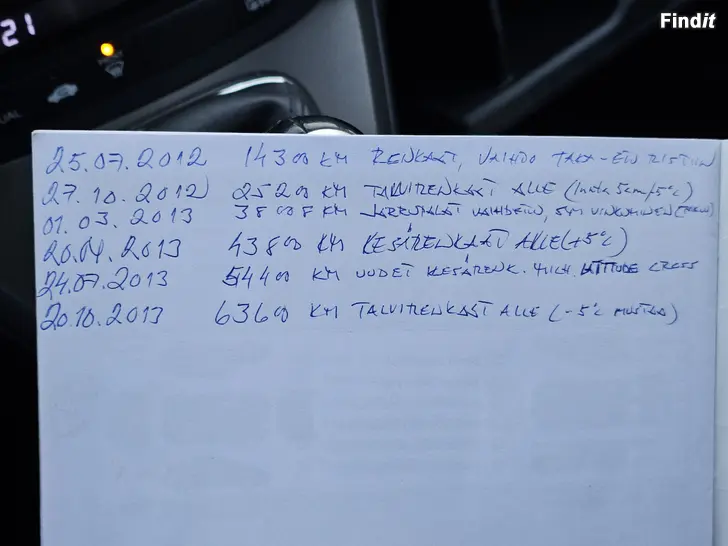 Findit
21
25.07.2012 14300 KM RENKAAT, VAIHDO TAKA-ETU RISTIIN
27.10.2012 25200 KM TALVIRENKAAT ALLE (lunta 5cm/-5°C)
01.03.2013 38008 KM JARRUPALAT VAIHDETTU, SYY VINKUMINEN
20.04.2013 43800 KM KESÄRENKAAT ALLE (+5°C)
24.07.2013 54400 KM UUDET KESÄRENK. MICH. LATITUDE CROSS
20.10.2013 63600 KM TALVIRENKAAT ALLE (-5°C MUSTAA)